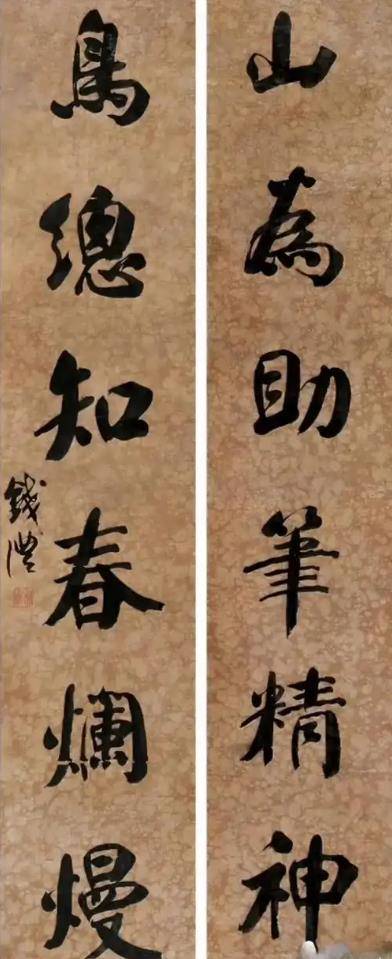 山為助筆精神
鳥總知春爛熳
錢灃